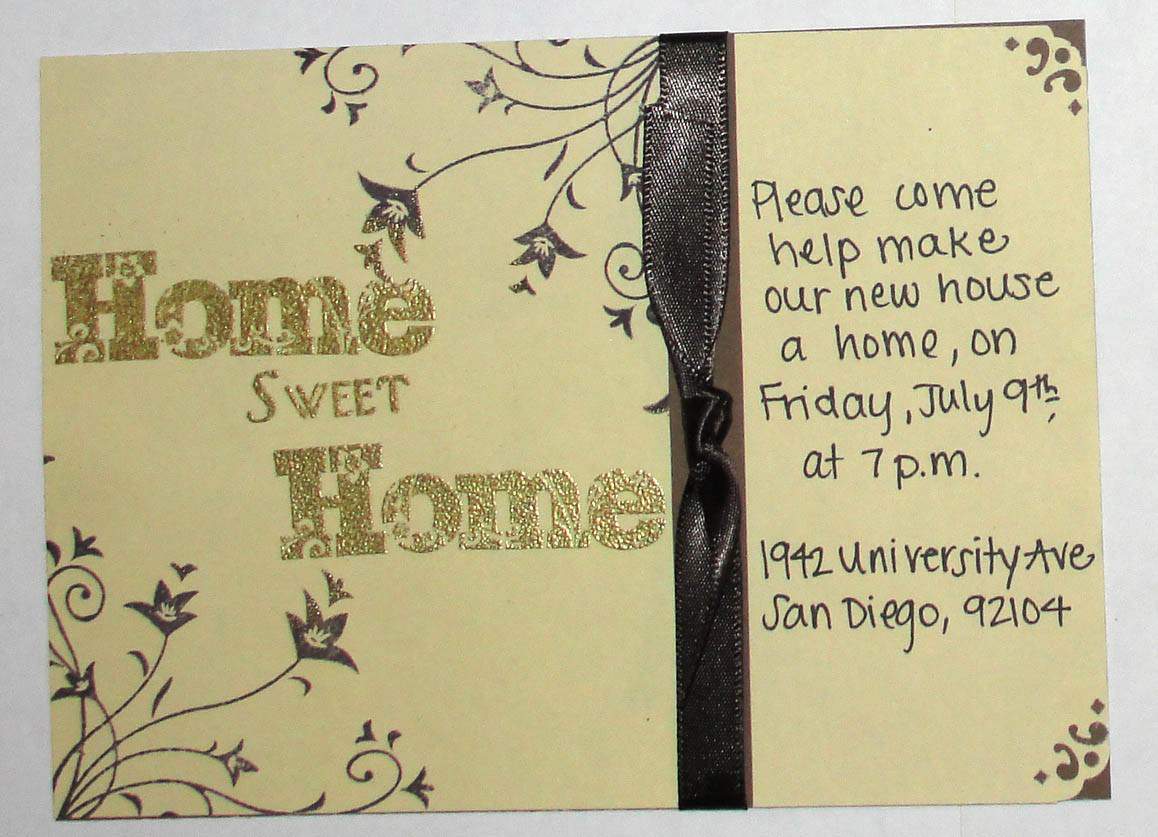 Home
Sweet
Home
Please come
help make
our new house
a home, on
Friday, July 9th,
at 7 p.m.
1942 University Ave
San Diego, 92104